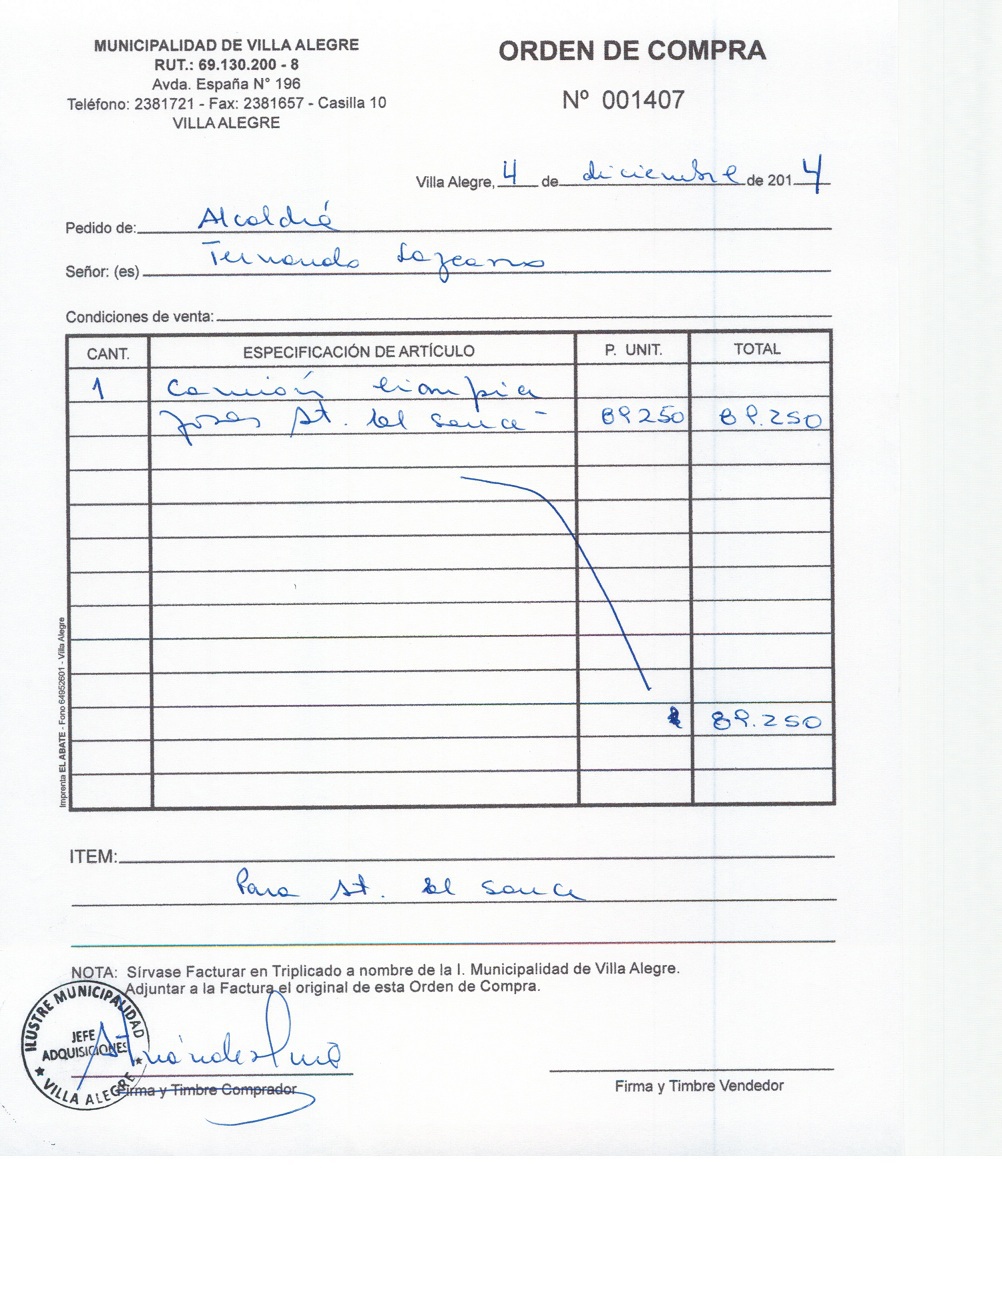 MUNICIPALIDAD DE VILLA ALEGRE
RUT.: 69.130.200 - 8
Avda. España N° 196
Teléfono: 2381721 - Fax: 2381657 - Casilla 10
VILLA ALEGRE
ORDEN DE COMPRA
Nº 001407
Villa Alegre, 4 de diciembre de 2014
Pedido de: Alcaldía
Señor: (es) Fernando Lazcano
Condiciones de venta:
CANT. ESPECIFICACIÓN DE ARTÍCULO P. UNIT. TOTAL
1 Camión limpia
fosas St. del Sauce 89250 89.250
$ 89.250
Imprenta EL ABATE - Fono 64952601 - Villa Alegre
ITEM:
Para St. del Sauce
NOTA: Sírvase Facturar en Triplicado a nombre de la I. Municipalidad de Villa Alegre.
Adjuntar a la Factura el original de esta Orden de Compra.
ILUSTRE MUNICIPALIDAD
JEFE
ADQUISICIONES
VILLA ALEGRE
Firma y Timbre Comprador
Firma y Timbre Vendedor